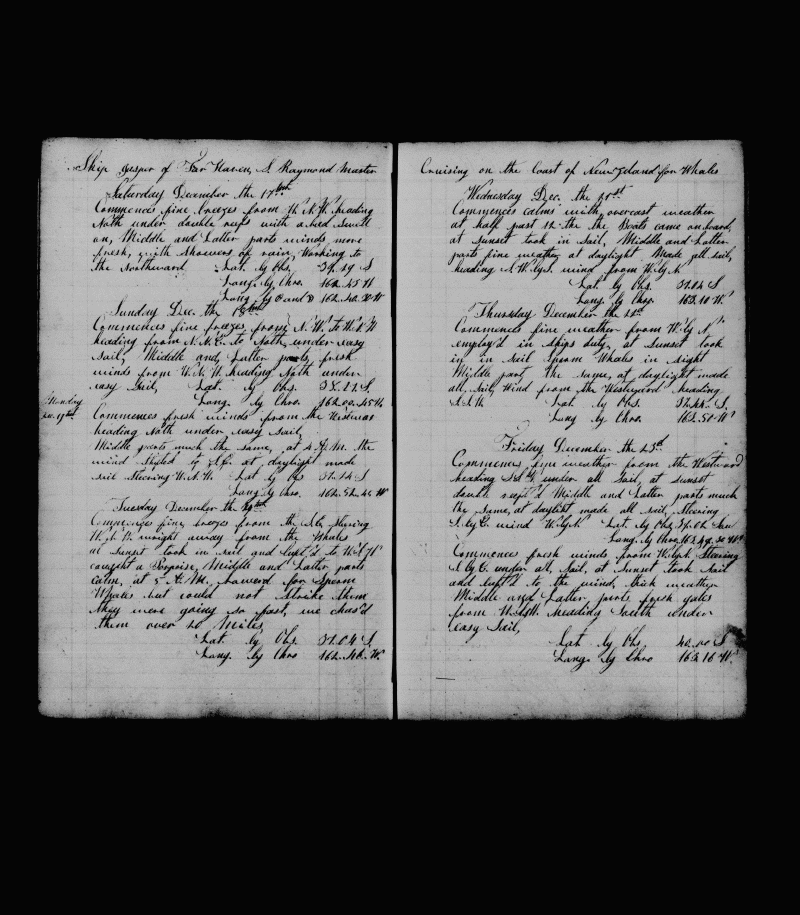 Ship Jasper of Fair Haven, S Raymond Master
Saturday December the 17th
Commences fine breezes from W.N.W. heading
North under double reefs with a bad Swell
on, Middle and Latter parts winds more
fresh, with showers of rain, Working to
the Northward Lat. by Obs. S
Long. by Chro. 162.45 W
Long by 162.40.30 W
Sunday Dec. the 18th
Commences fine breezes from N.W. to W.N.W
heading from N.N.E. to North, under easy
Sail, Middle and Latter parts fresh
winds from W.N.W. heading North under
easy Sail, Lat. by Obs. 38.21 S.
Long. by Chro. 162.00.45 W
Monday
Dec. 19th
Commences fresh winds from the Westward
heading North under easy sail,
Middle parts much the same, at 4 A.M. the
wind Shifted to at daylight made
sail Steering W.N.W. Lat by Obs S
Long by Chro. 162.52.45 W
Tuesday December the 20th
Commences fine breezes from the Steering
away from the Whales
at Sunset took in sail and luff'd to
caught a Porpoise, Middle and Latter parts
calm, at 5 A.M. Lowered for Sperm
Whales but could not Strike them
they were going so fast, we chas'd
them over 20 Miles,
Lat. by Obs. 37.04 S.
Long. by Chro 162.46. W.
Cruising on the Coast of New Zeland for Whales
Wednesday Dec. the 21st
Commences calms with overcast weather
at half past 12 the the Boats came on board,
at sunset took in Sail, Middle and Latter
parts fine weather at daylight Made all sail,
heading wind from W.by N
Lat by Obs. 37.04 S
Long by Chro. 163.10 W.
Thursday December the
Commences fine weather from W.by N,
employ'd in Ships duty, at sunset took
in in sail Sperm Whales in sight
Middle part the Same, at daylight made
all Sail, Wind from the Westward heading
S.S.W. Lat by Obs. S.
Long by Chro. 163.50 W
Friday December the 23d
Commences fine weather from the Westward
heading under all Sail, at sunset
double reef'd Middle and Latter parts much
the Same, at daylight made all sail, Steering
S.by E. wind W.by N Lat by Obs
Long. by Chro
Commences fresh winds from W.by N. Steering
S.by E. under all Sail, at Sunset took Sail
and luff'd to the wind, thick weather
Middle and Latter parts fresh gales
from heading South under
easy Sail,
Lat by Obs 40.00 S
Long by Chro 163.16 W.